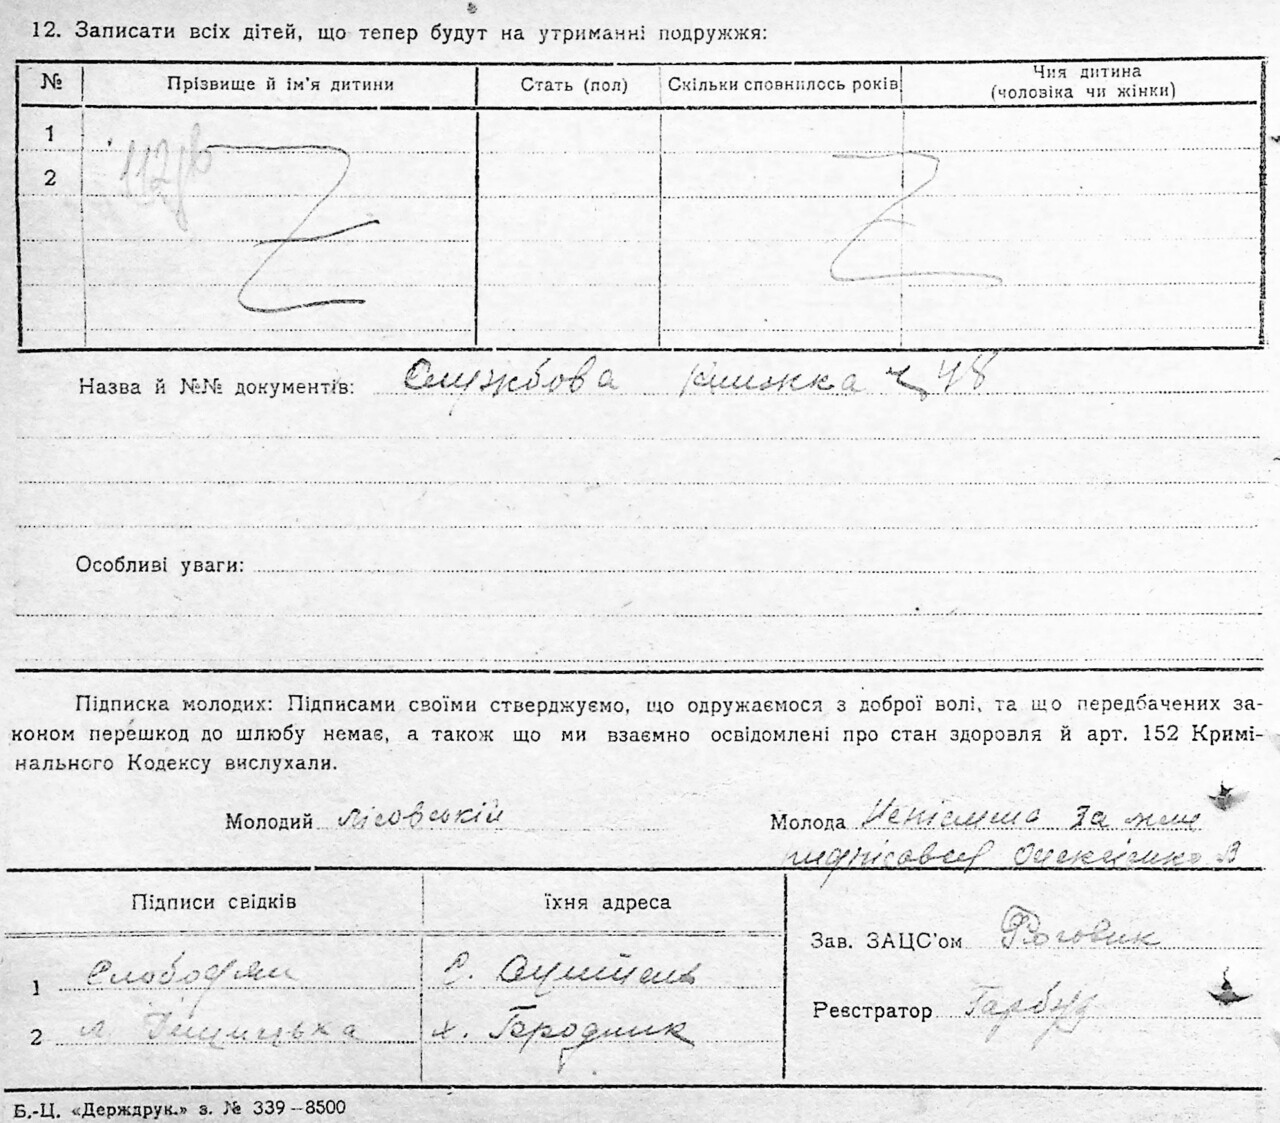 12. Записати всіх дітей, що тепер будут на утриманні подружжя:
№ Прізвище й ім'я дитини Стать (пол) Скільки сповнилось років Чия дитина (чоловіка чи жінки)
1
2
Назва й №№ документів: Службова книжка ч 48
Особливі уваги:
Підписка молодих: Підписами своїми стверджуємо, що одружаємося з доброї волі, та що передбачених за-
коном перешкод до шлюбу немає, а також що ми взаємно освідомлені про стан здоровля й арт. 152 Кримі-
нального Кодексу вислухали.
Молодий Лісовській Молода за
Підписи свідків їхня адреса
Зав. ЗАЦС'ом Роговик
1 Слободян с.
Реєстратор Гарбуз
2 х. Городник
Б.-Ц. «Держдрук.» з. № 339–8500